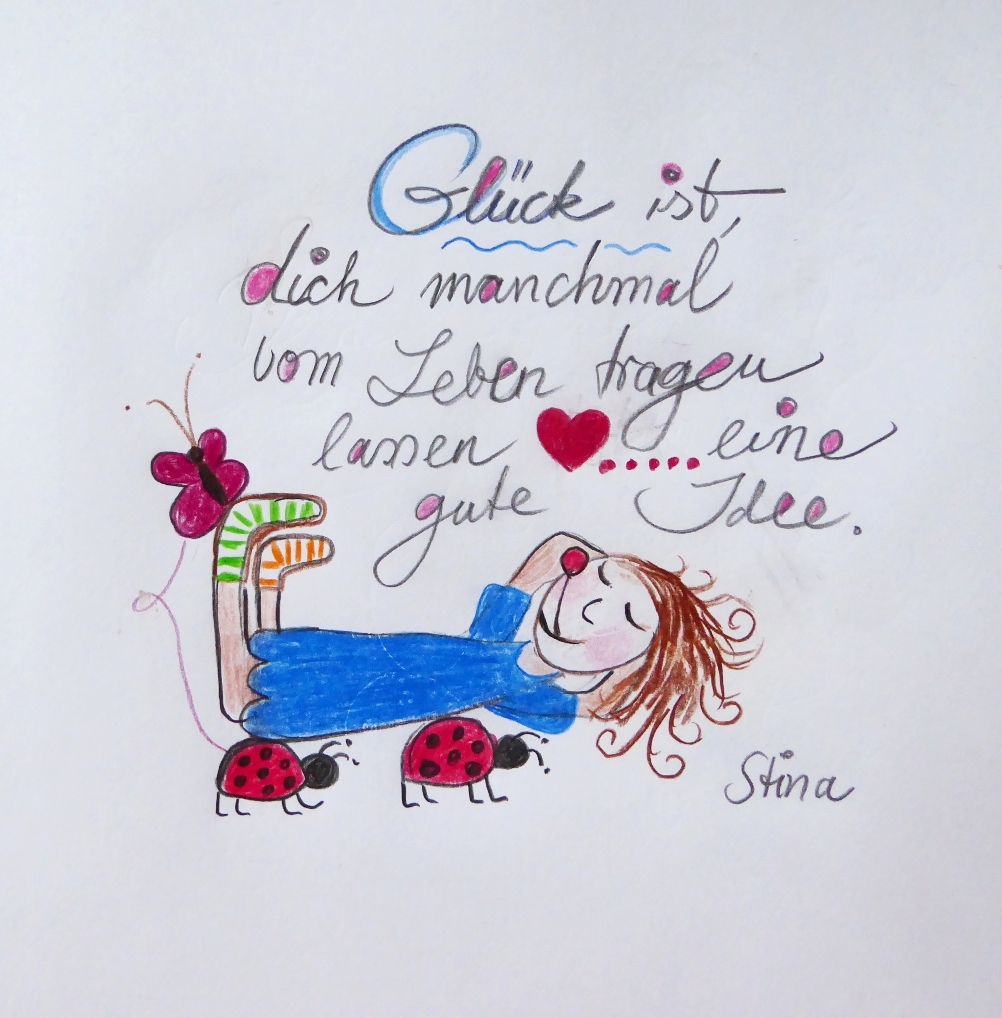 Glück ist,
dich manchmal
vom Leben tragen
lassen ♥.....eine
gute Idee.
Stina